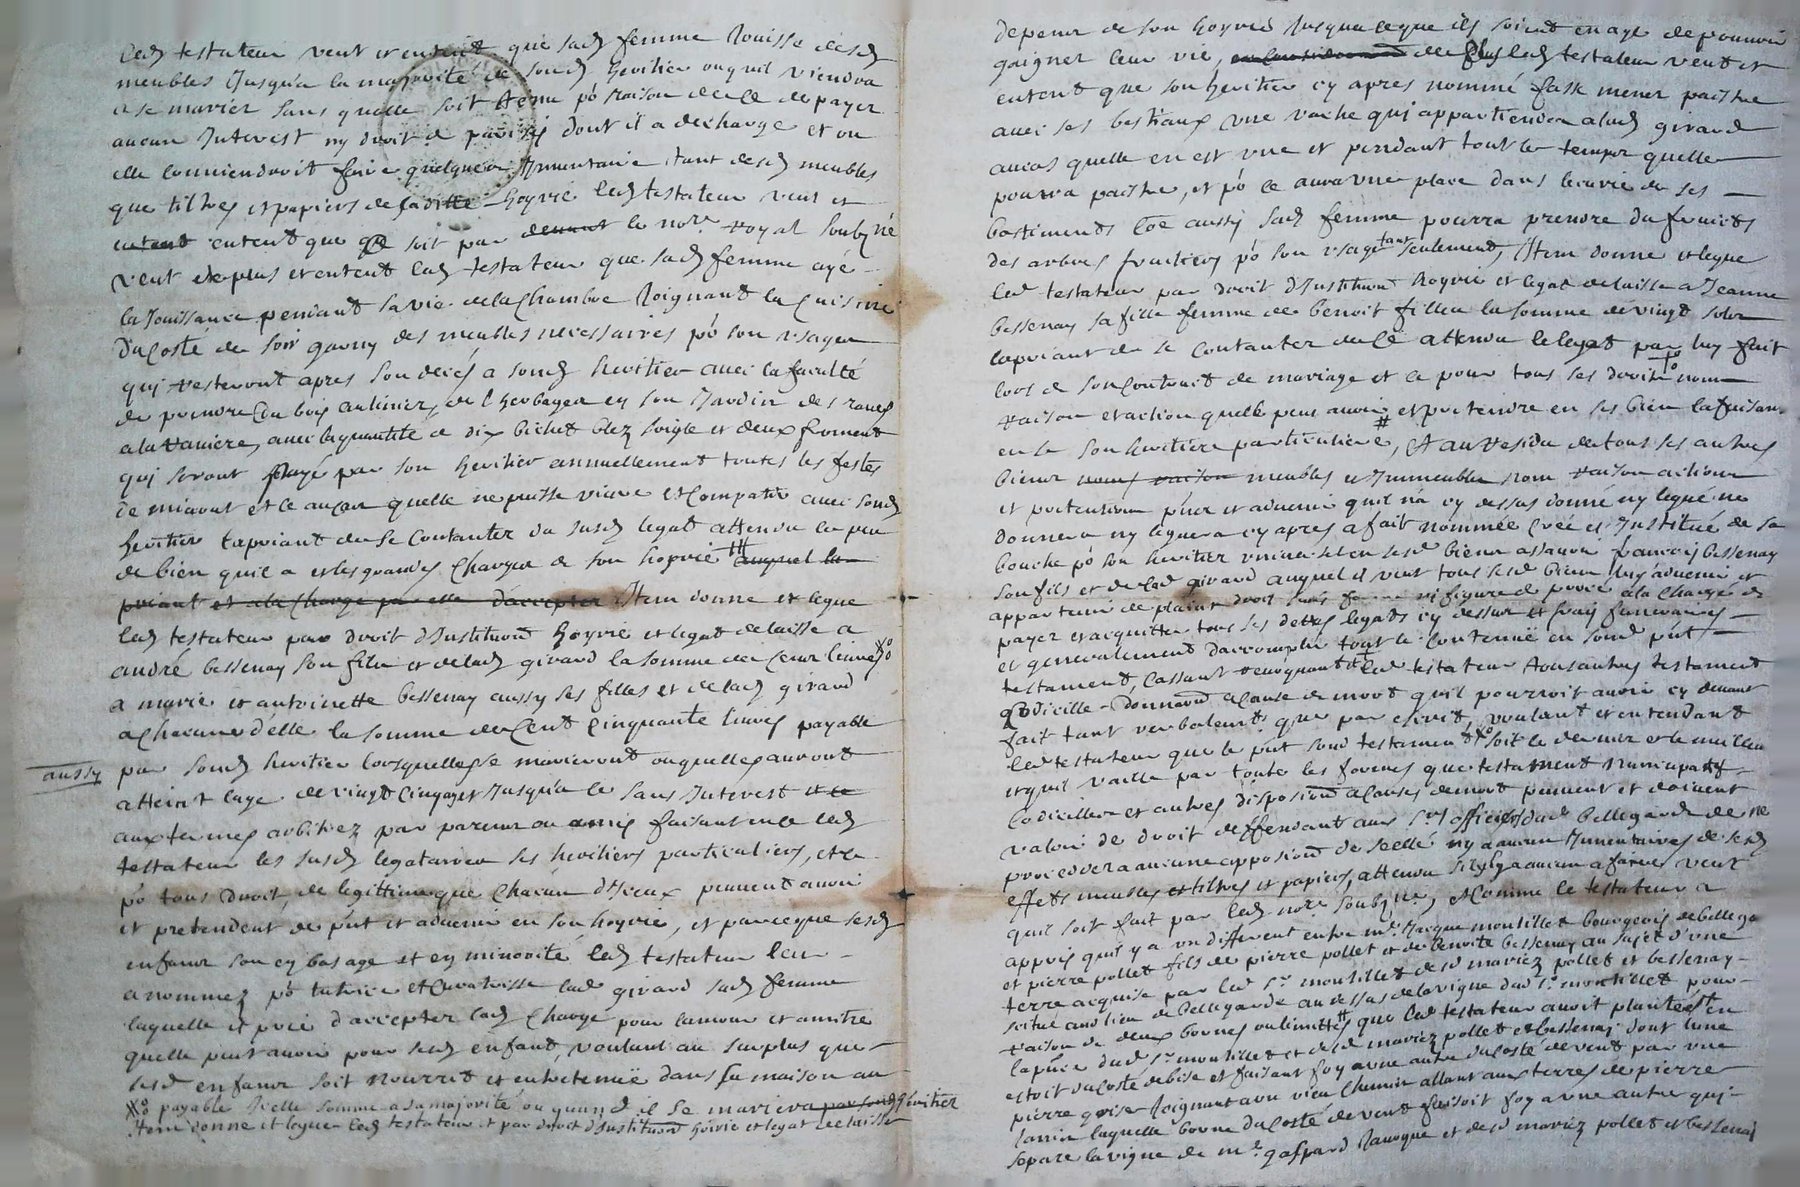 led testateur veut et entent que sad femme Jouisse desd
meubles Jusqua la majorité de sond heritier ou quil viendra
a se marier sans quelle soit tenu po raison de ce de payer
aucun Interest ny droit de parisij dont il a decharge et ou
elle conviendroit faire quelque Inventaire tant desd meubles
que tiltres et papiers de sa ditte hoyrie led testateur veut et
entent entent que ce soit par devant le nore royal soubzné
veut de plus et entent led testateur que sad femme aye
la Jouissance pendant sa vie de la chambre Joignant la cuisine
du costé de soir garny des meubles necessaires po son usage
qui resteront apres son decés a sond heritier avec la faculté
de prendre du bois au linier, de l'herbage en son Jardin des raves
a la raviere, avec la quantité de dix bichet blez soigle et deux froment
qui seront payé par son heritier annuellement toutes les festes
de micaout et ce au cas quelle ne puisse vivre et compatir avec sond
heritier la priant de se contanter du susd legat attendu le peu
de bien quil a et les grandes charges de son hoyrie auquel la
priant et a la charge par elle d'accepter Item donne et legue
led testateur par droit d'Institution hoyrie et legat delaisse a
andré bessenay son fils et de lad girard la somme de cent livres
a marie et antoinette bessenay aussy ses filles et de lad girard
a chacune d'elle la somme de cent cinquante livres payable
aussy par sond heritier lorsquelles se marieront ou quelles auront
atteint lage de vingt cinq ans Jusqua ce sans Interest et ce
aux termes arbitrez par parens ou amis faisant led
testateur les susd legataires ses heritiers particuliers, et ce
po tous droit, de legittime que chacun d'Iceux peuvent avoir
et pretendent de pnt et advenir en son hoyrie, et parceque sesd
enfans son en bas age et en minorité led testateur leur
a nommez po tutrice et curatrisse lad girard sad femme
laquelle il prie d'accepter lad charge pour lamour et amitié
quelle peut avoir pour sesd enfant, voulant au surplus que
sesd enfans soit nourrit et entretenuë dans sa maison au
payable d'icelle somme a sa majorité ou quand il se mariera par sond heritier
Item donne et legue led testateur et par droit d'Institution hoirie et legat delaisse
depens de son hoyrie Jusqua ceque ils soient en age de pouvoir
gaigner leur vie, de plus led testateur veut et
entent que son heritier cy apres nommé fasse mener paistre
avec ses bestiaux une vache qui appartiendra a lad girard
au cas quelle en est une et pendant tout le temps quelle
pourra paistre, et po ce aura une place dans lecurie de ses
bastiments coe aussy sad femme pourra prendre du fruicts
des arbres fruitiers po son usage tant seulement, Item donne et legue
led testateur par droit d'Institution hoyrie et legat delaisse a Jeanne
bessenay sa fille femme de benoit fillieu la somme de vingt solz
la priant de se contanter de ce attendu le legat par luy fait
lors de son contract de mariage et ce pour tous ses droits nom
raison et action quelle peut avoir et pretendre en ses bien la faisan
en ce son heritiere particuliere, Et au residu de tous ses autres
biens noms raison meubles et Immeubles nom raison actions
et pretention pnt et advenir quil na cy dessus donné ny legué ne
donnera ny leguera cy apres a fait nommée crée et Institué de sa
bouche po son heritier universel en sesd biens assavoir francois bessenay
son fils et de lad girard auquel il veut tous sesd biens luy advenir et
appartenir de plaint droit sans forme ni figure de procé a la charge de
payer et acquitter tous ses dettes legats cy dessus et frais funeraires
et generalement daccomplir tout le contenuë en sond pnt
testament, Cassant revoquant led testateur tous autres testament
codicille donnaon a cause de mort quil pourroit avoir cy devant
fait tant verbalement que par escrit, voulant et entendant
led testateur que le pnt sond testament soit le dernier et le meilleur
et quil vaille par toutes les formes que testament nuncupatif
codicilles et autres disposion a causes de mort peuvent et doivent
valoir de droit deffendant aux srs officiers dud bellegarde de ne
proceder a aucune apposion de scellé ny a aucun Inventaires de sesd
effets meubles et tiltres et papiers, attendu sil y a aucun a faire veut
quil soit fait par led nore soubzné, Et comme le testateur a
appris quil y a un different entre mr Jacque montillet bourgeois de bellega
et pierre pollet fils de pierre pollet et de benoite bessenay au sujet d'une
terre acquise par led sr montillet desd mariez pollet et bessenay
scitué au lieu de bellegarde au dessus de la vigne dud sr montillet pour
raison de deux bornes ou limittes que led testateur avoit plantées en
la pnce dud sr montillet et desd mariez pollet et bessenai dont lune
estoit du costé de bise et faisant foy a une autre du costé de vent par une
pierre grise Joignant a un vieu chemin allant aux terres de pierre
Jamin laquelle borne du costé de vent faisoit foy a une autre qui
separe la vigne de mr gaspard Jaurogue et desd mariez pollet et bessenai